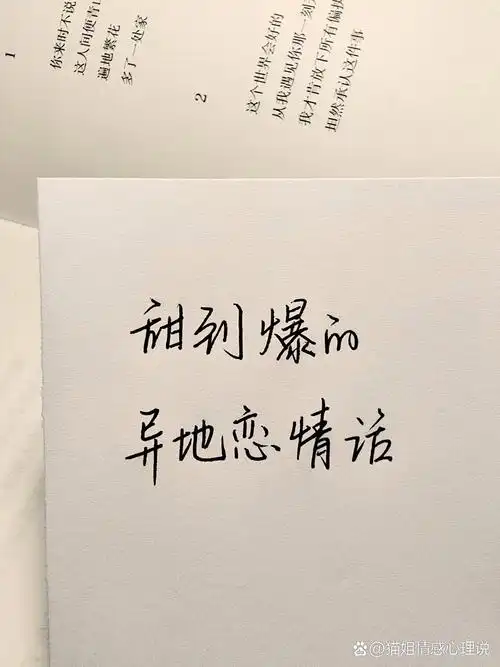 1
你来时不说
这人间便青山
遍地繁花
多了一处家
2
这个世界会好的
从我遇见你那一刻
我才肯放下所有偏执
坦然承认这件事
甜到爆的
异地恋情话
@猫姐情感心理说